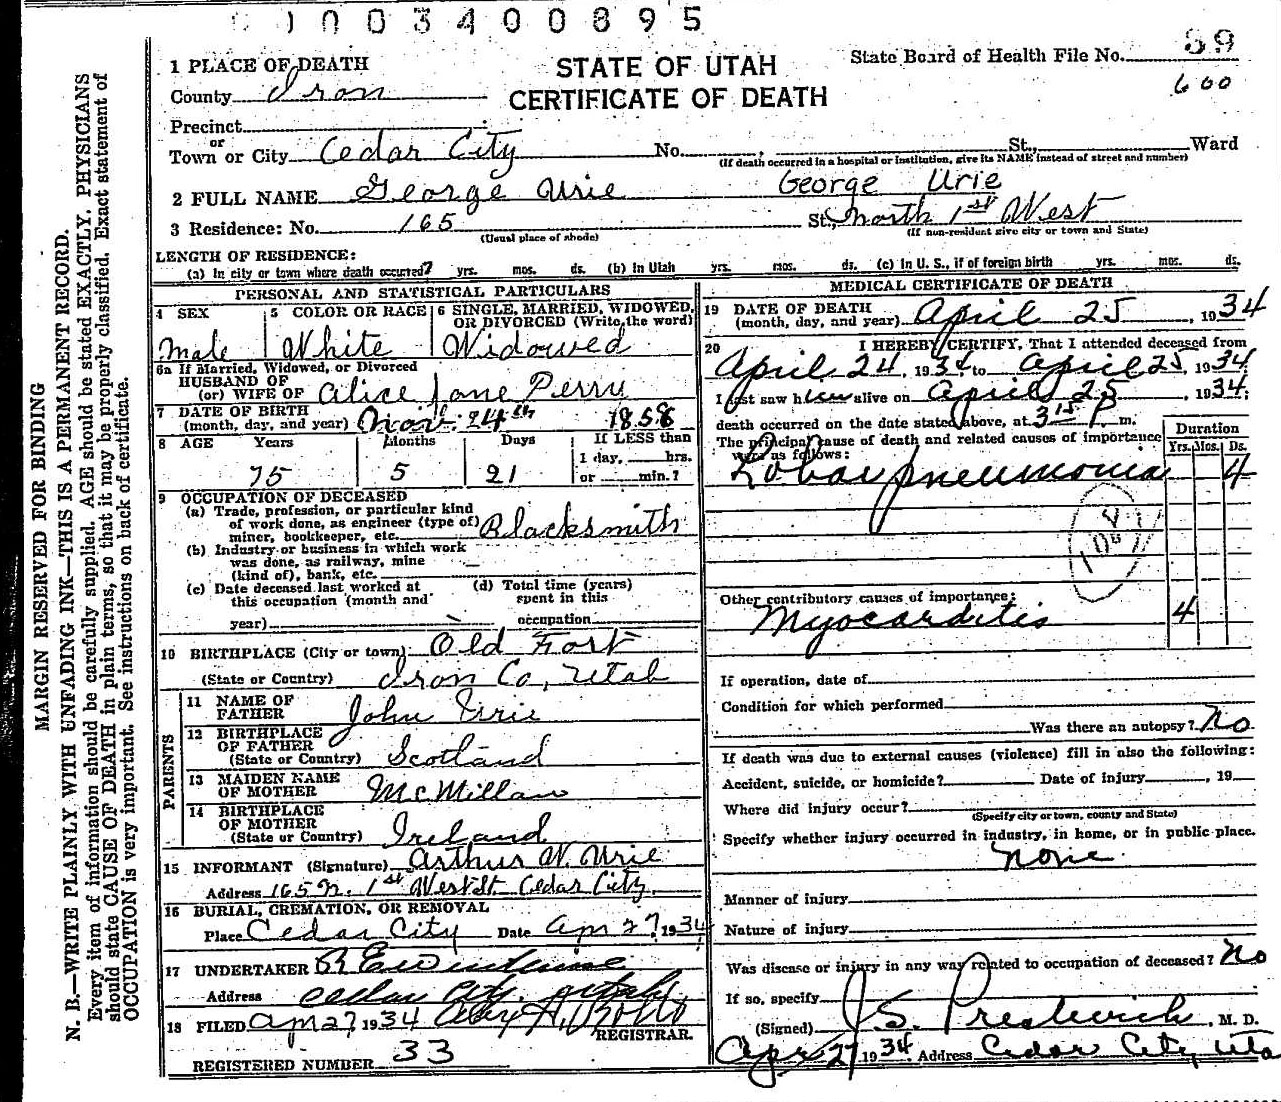 0003400895
State Board of Health File No. 89
600
STATE OF UTAH
CERTIFICATE OF DEATH
1 PLACE OF DEATH
County Iron
Precinct
or
Town or City Cedar City No. , St., Ward
(If death occurred in a hospital or institution, give its NAME instead of street and number)
2 FULL NAME George Urie George Urie
3 Residence: No. 165 St., North 1st West
(Usual place of abode) (If non-resident give city or town and State)
LENGTH OF RESIDENCE:
(a) In city or town where death occurred? yrs. mos. ds. (b) In Utah yrs. mos. ds. (c) In U. S., if of foreign birth yrs. mos. ds.
PERSONAL AND STATISTICAL PARTICULARS
4 SEX 5 COLOR OR RACE 6 SINGLE, MARRIED, WIDOWED,
OR DIVORCED (Write the word)
Male White Widowed
6a If Married, Widowed, or Divorced
HUSBAND OF
(or) WIFE OF Alice Jane Perry
7 DATE OF BIRTH
(month, day, and year) Nov. 24th 1858
8 AGE Years Months Days If LESS than
1 day, hrs.
75 5 21 or min.?
9 OCCUPATION OF DECEASED
(a) Trade, profession, or particular kind
of work done, as engineer (type of)
miner, bookkeeper, etc. Blacksmith
(b) Industry or business in which work
was done, as railway, mine
(kind of), bank, etc.
(c) Date deceased last worked at (d) Total time (years)
this occupation (month and spent in this
year) occupation
10 BIRTHPLACE (City or town) Old Fort
(State or Country) Iron Co, Utah
PARENTS
11 NAME OF
FATHER John Urie
12 BIRTHPLACE
OF FATHER
(State or Country) Scotland
13 MAIDEN NAME
OF MOTHER McMillan
14 BIRTHPLACE
OF MOTHER
(State or Country) Ireland
15 INFORMANT (Signature) Arthur W. Urie
Address 165 N. 1st West St Cedar City
16 BURIAL, CREMATION, OR REMOVAL
Place Cedar City Date Apr 27, 1934
17 UNDERTAKER
Address Cedar City, Utah
18 FILED Apr 27 1934
REGISTRAR.
REGISTERED NUMBER 33
MEDICAL CERTIFICATE OF DEATH
19 DATE OF DEATH
(month, day, and year) April 25, 1934
20 I HEREBY CERTIFY, That I attended deceased from
April 24, 1934, to April 25, 1934
I last saw him alive on April 25, 1934;
death occurred on the date stated above, at 3 15 P m.
The principal cause of death and related causes of importance
were as follows:
Duration
Yrs. Mos. Ds.
Lobar pneumonia 4
108
Other contributory causes of importance:
Myocarditis 4
If operation, date of
Condition for which performed
Was there an autopsy? No
If death was due to external causes (violence) fill in also the following:
Accident, suicide, or homicide? Date of injury , 19
Where did injury occur?
(Specify city or town, county and State)
Specify whether injury occurred in industry, in home, or in public place.
none
Manner of injury
Nature of injury
Was disease or injury in any way related to occupation of deceased? No
If so, specify
(Signed) J. S. Prestwich, M. D.
Apr 27 1934 Address Cedar City, Utah
MARGIN RESERVED FOR BINDING
N. B.—WRITE PLAINLY WITH UNFADING INK—THIS IS A PERMANENT RECORD.
Every item of information should be carefully supplied. AGE should be stated EXACTLY. PHYSICIANS
should state CAUSE OF DEATH in plain terms, so that it may be properly classified. Exact statement of
OCCUPATION is very important. See instructions on back of certificate.